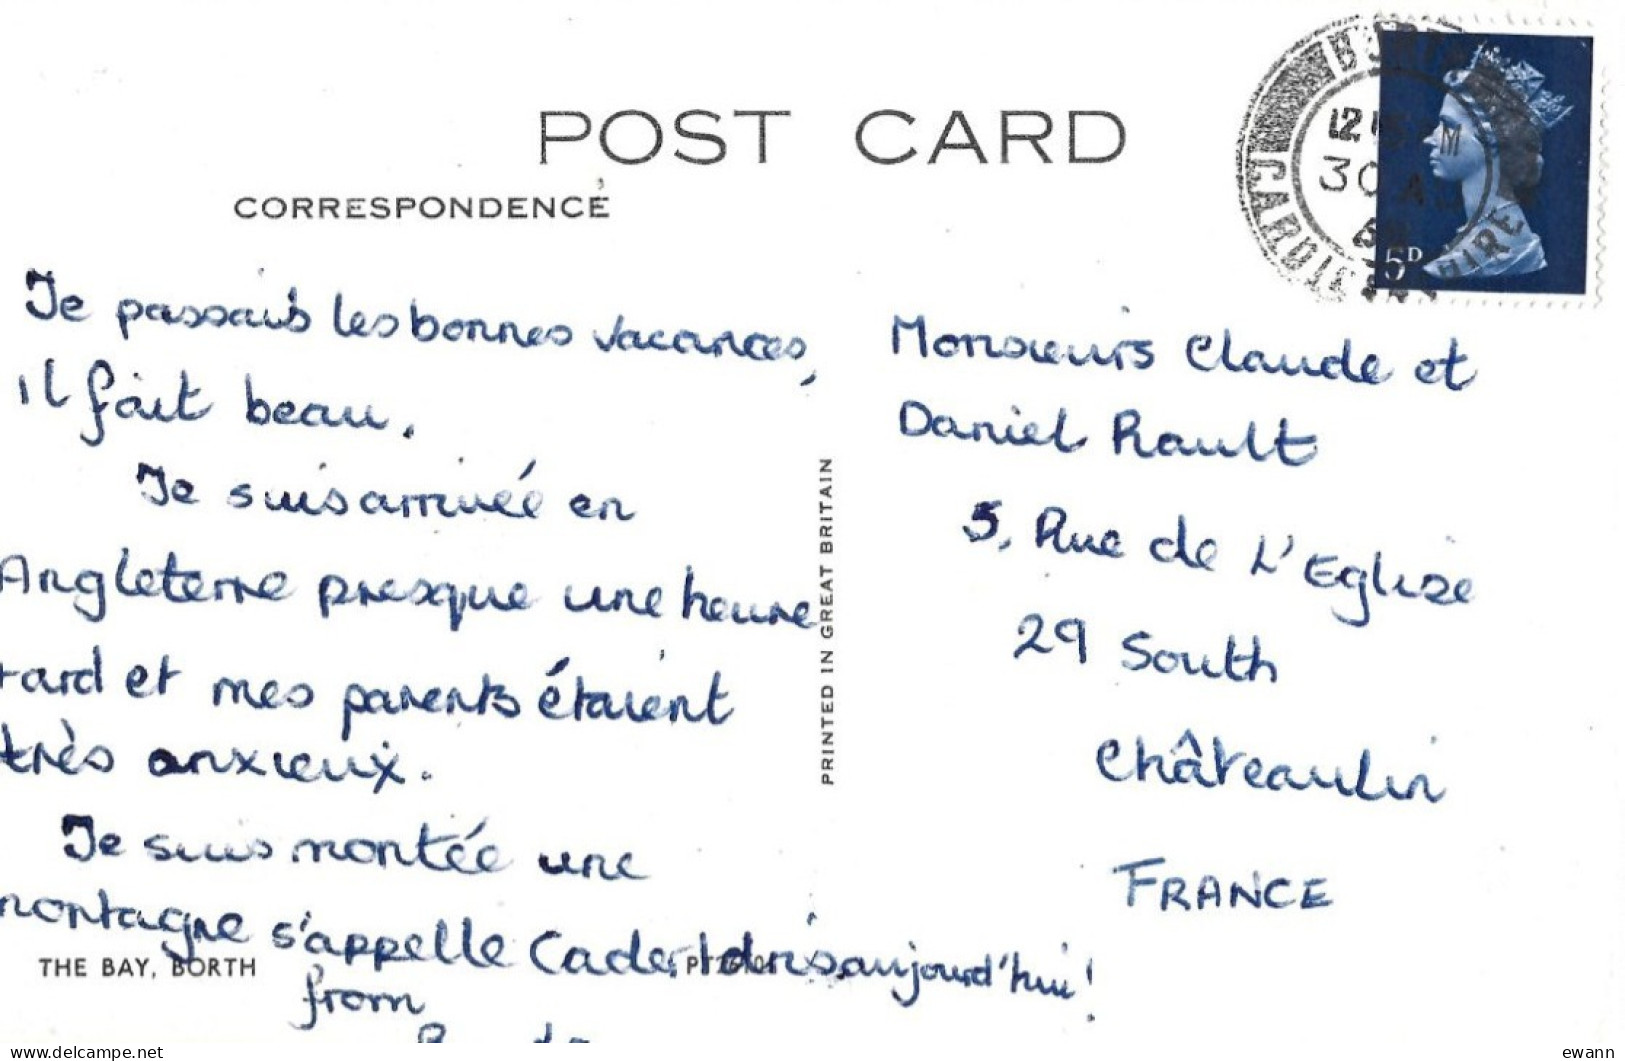 POST CARD
CORRESPONDENCE
Je passais les bonnes vacances,
il fait beau.
Je suis arrivée en
Angleterre presque une heure
tard et mes parents étaient
très anxieux.
Je suis montée une
montagne s'appelle Cader Idris, aujourd'hui!
from
THE BAY, BORTH
PRINTED IN GREAT BRITAIN
Monsieurs Claude et
Daniel Rault
5, Rue de L'Eglise
29 South
Châteaulin
FRANCE
30
5D
delcampe.net
ewann